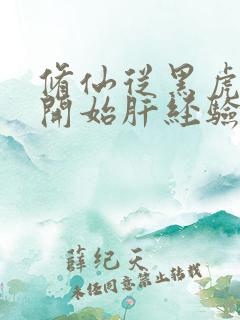 修仙從黑虎
開始肝経験
薛纪天
未经同意禁止转载